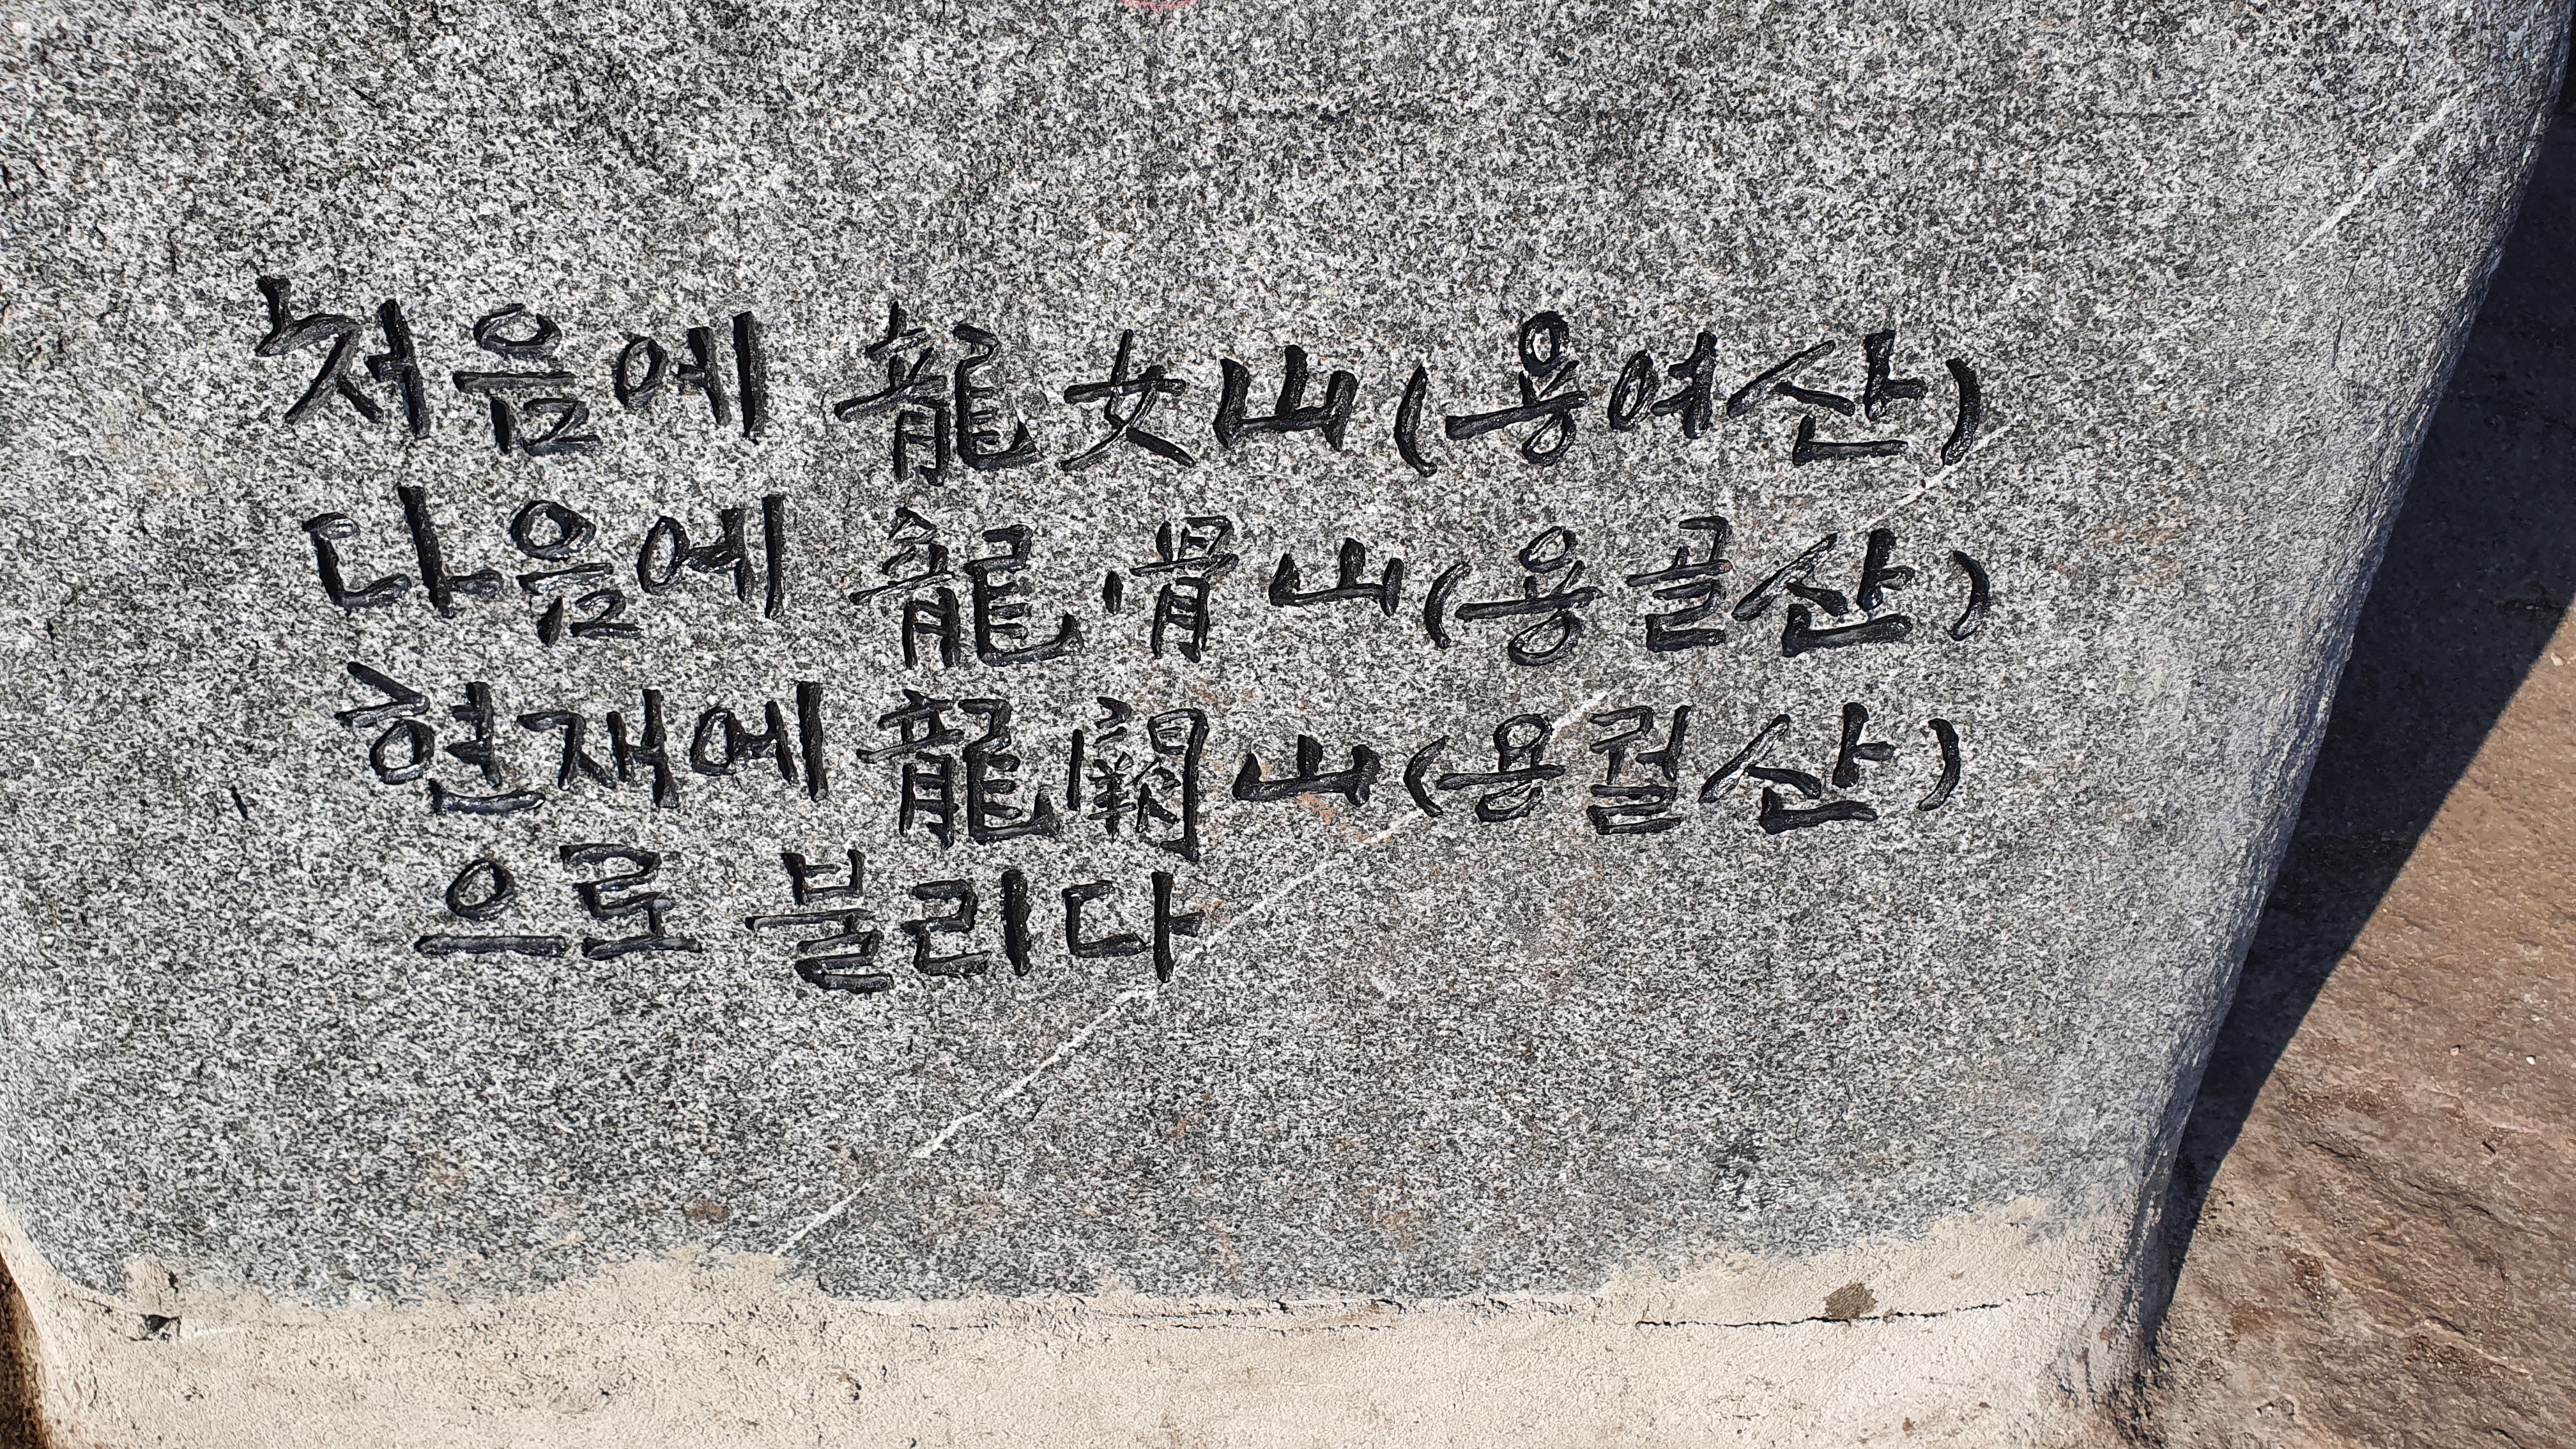 처음에 龍女山(용여산)
다음에 龍骨山(용골산)
현재에 龍闕山(용궐산)
으로 불리다